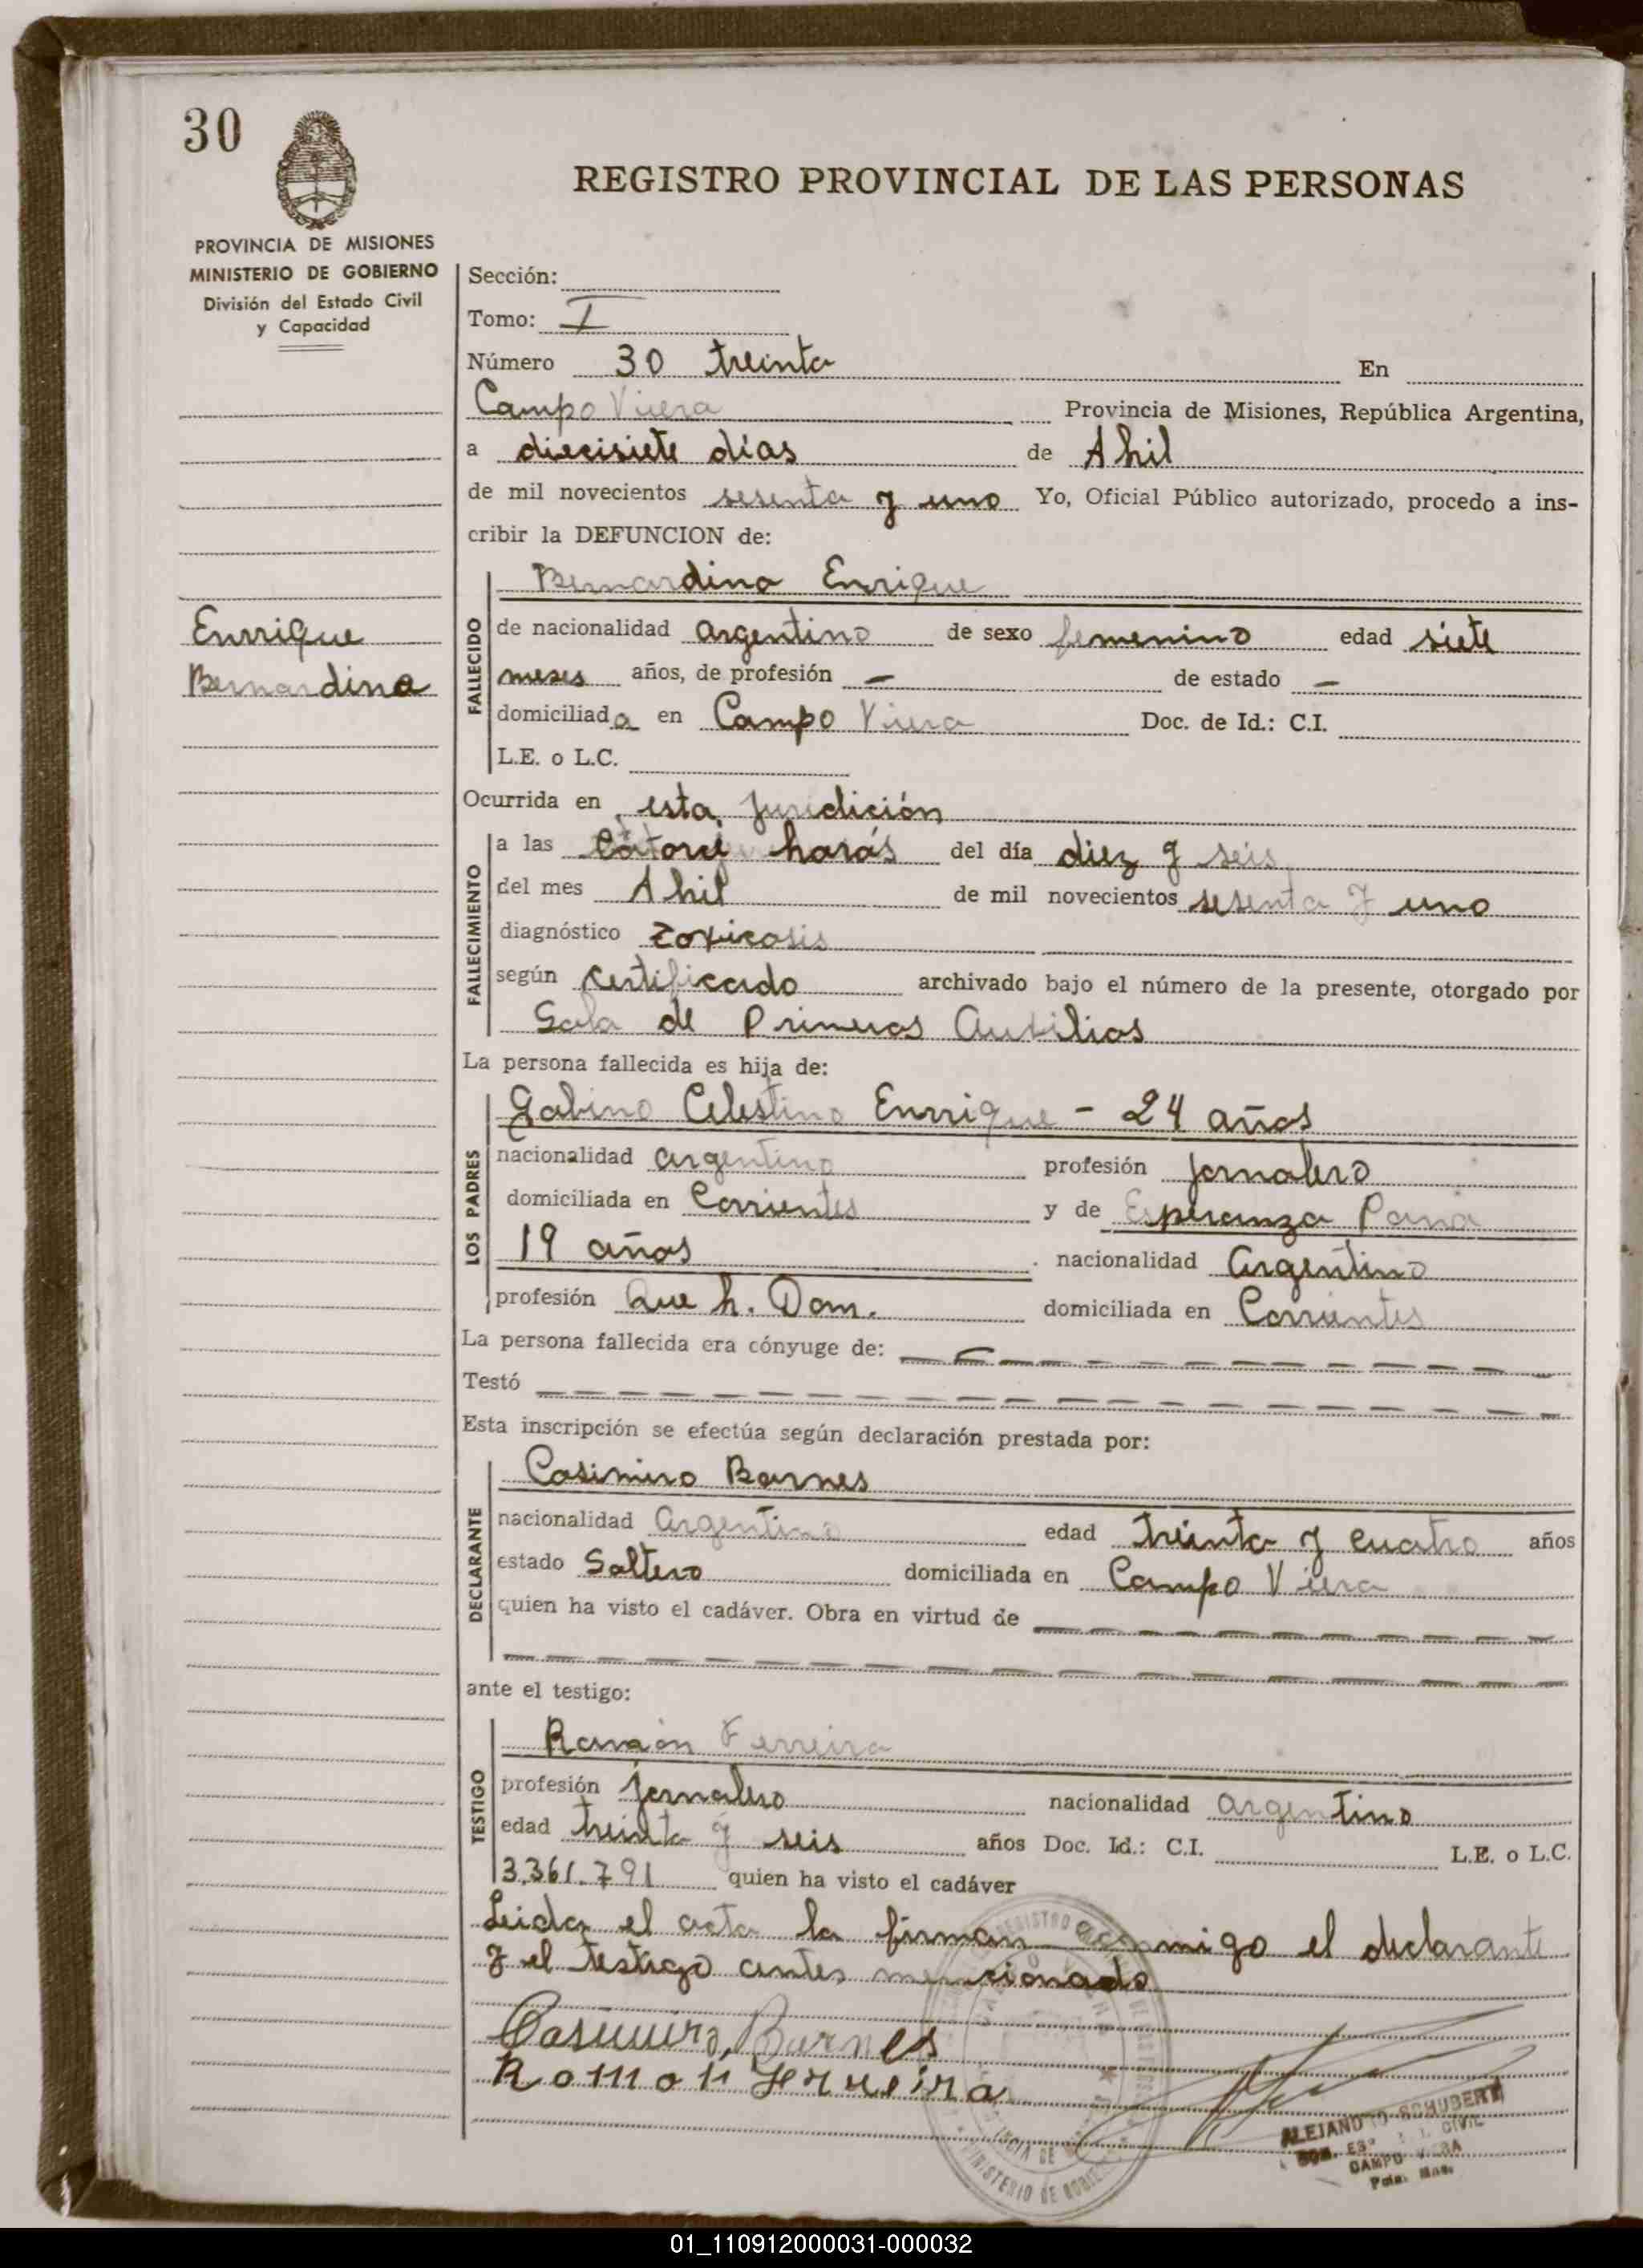 30
REGISTRO PROVINCIAL DE LAS PERSONAS
PROVINCIA DE MISIONES
MINISTERIO DE GOBIERNO
División del Estado Civil
y Capacidad
Enrrique
Bernardina
Sección:
Tomo: I
Número 30 treinta En
Campo Viera Provincia de Misiones, República Argentina,
a diecisiete días de Abil
de mil novecientos sesenta y uno Yo, Oficial Público autorizado, procedo a ins-
cribir la DEFUNCION de:
Bernardina Enrique
FALLECIDO
de nacionalidad argentino de sexo femenino edad siete
meses años, de profesión — de estado —
domiciliada en Campo Viera Doc. de Id.: C.I.
L.E. o L.C.
Ocurrida en esta Juridición
FALLECIMIENTO
a las horás del día diez y seis
del mes Abil de mil novecientos sesenta y uno
diagnóstico Toxicosis
según certificado archivado bajo el número de la presente, otorgado por
Sala de Primeros Auxilios
La persona fallecida es hija de:
LOS PADRES
Gabino Celestino Enrrique - 24 años
nacionalidad argentino profesión jornalero
domiciliada en Corrientes y de Esperanza
19 años nacionalidad Argentino
profesión Que h. Dom. domiciliada en Corrientes
La persona fallecida era cónyuge de: — — — — — — — — — —
Testó — — — — — — — — — — — — —
Esta inscripción se efectúa según declaración prestada por:
DECLARANTE
Casimiro Barnes
nacionalidad Argentino edad treinta y cuatro años
estado Soltero domiciliada en Campo Viera
quien ha visto el cadáver. Obra en virtud de — — — — — — — — —
— — — — — — — — — — — — — — —
ante el testigo:
TESTIGO
Ramón Ferreira
profesión jornalero nacionalidad argentino
edad treinta y seis años Doc. Id.: C.I. L.E. o L.C.
3.361.791 quien ha visto el cadáver
Leida el acta la firman conmigo el declarante
y el testigo antes mencionado
Casimiro, Barnes
Ramon Ferreira
ALEJANDRO SCHUBERT
CIVIL
CAMPO VIERA
Pcia. Mns.
MINISTERIO DE GOBIERNO
01_110912000031-000032